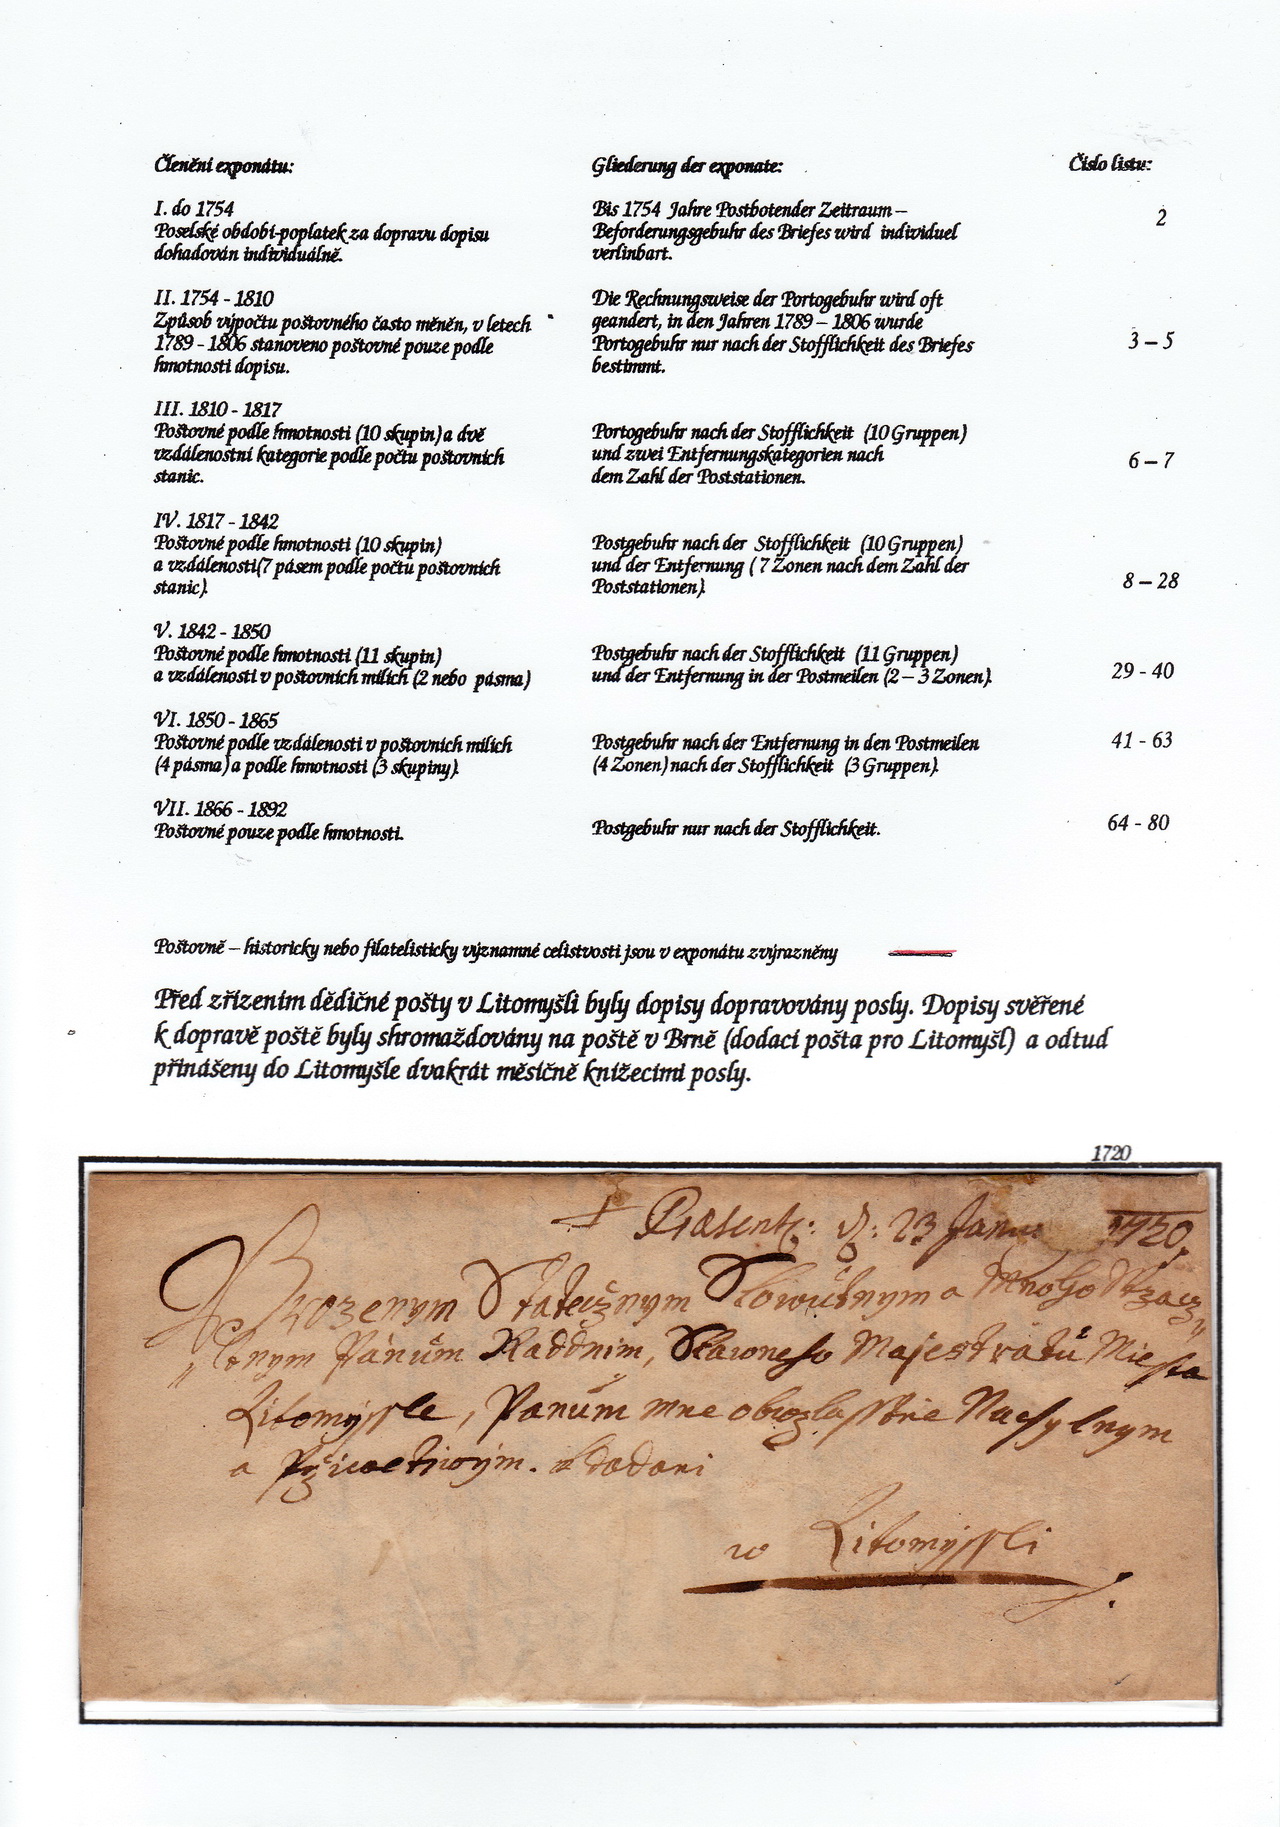 Členění exponátu:
Gliederung der exponate:
Číslo listu:
I. do 1754
Poselské období-poplatek za dopravu dopisu
dohadován individuálně.
Bis 1754 Jahre Postbotender Zeitraum –
Beforderungsgebuhr des Briefes wird individuel
verlinbart.
2
II. 1754 - 1810
Způsob výpočtu poštovného často měněn, v letech
1789 - 1806 stanoveno poštovné pouze podle
hmotnosti dopisu.
Die Rechnungsweise der Portogebuhr wird oft
geandert, in den Jahren 1789 – 1806 wurde
Portogebuhr nur nach der Stofflichkeit des Briefes
bestimmt.
3 – 5
III. 1810 - 1817
Poštovné podle hmotnosti (10 skupin) a dvě
vzdálenostní kategorie podle počtu poštovních
stanic.
Portogebuhr nach der Stofflichkeit (10 Gruppen)
und zwei Entfernungskategorien nach
dem Zahl der Poststationen.
6 – 7
IV. 1817 - 1842
Poštovné podle hmotnosti (10 skupin)
a vzdálenosti(7 pásem podle počtu poštovních
stanic).
Postgebuhr nach der Stofflichkeit (10 Gruppen)
und der Entfernung ( 7 Zonen nach dem Zahl der
Poststationen).
8 – 28
V. 1842 - 1850
Poštovné podle hmotnosti (11 skupin)
a vzdálenosti v poštovních mílích (2 nebo pásma)
Postgebuhr nach der Stofflichkeit (11 Gruppen)
und der Entfernung in der Postmeilen (2 – 3 Zonen).
29 - 40
VI. 1850 - 1865
Poštovné podle vzdálenosti v poštovních mílích
(4 pásma) a podle hmotnosti (3 skupiny).
Postgebuhr nach der Entfernung in den Postmeilen
(4 Zonen) nach der Stofflichkeit (3 Gruppen).
41 - 63
VII. 1866 - 1892
Poštovné pouze podle hmotnosti.
Postgebuhr nur nach der Stofflichkeit.
64 - 80
Poštovně – historicky nebo filatelisticky významné celistvosti jsou v exponátu zvýrazněny
Před zřízením dědičné pošty v Litomyšli byly dopisy dopravovány posly. Dopisy svěřené
k dopravě poště byly shromažďovány na poště v Brně (dodací pošta pro Litomyšl) a odtud
přinášeny do Litomyšle dvakrát měsíčně knížecími posly.
1720
Præsent: d: 23 Janu 1720
Statečznym Slowutnym a Mnoho
Pánům Raddnim, Majestratu Miesta
Litomyssle, Panúm mne
a Przicetiwým. dodani
w Litomyssli